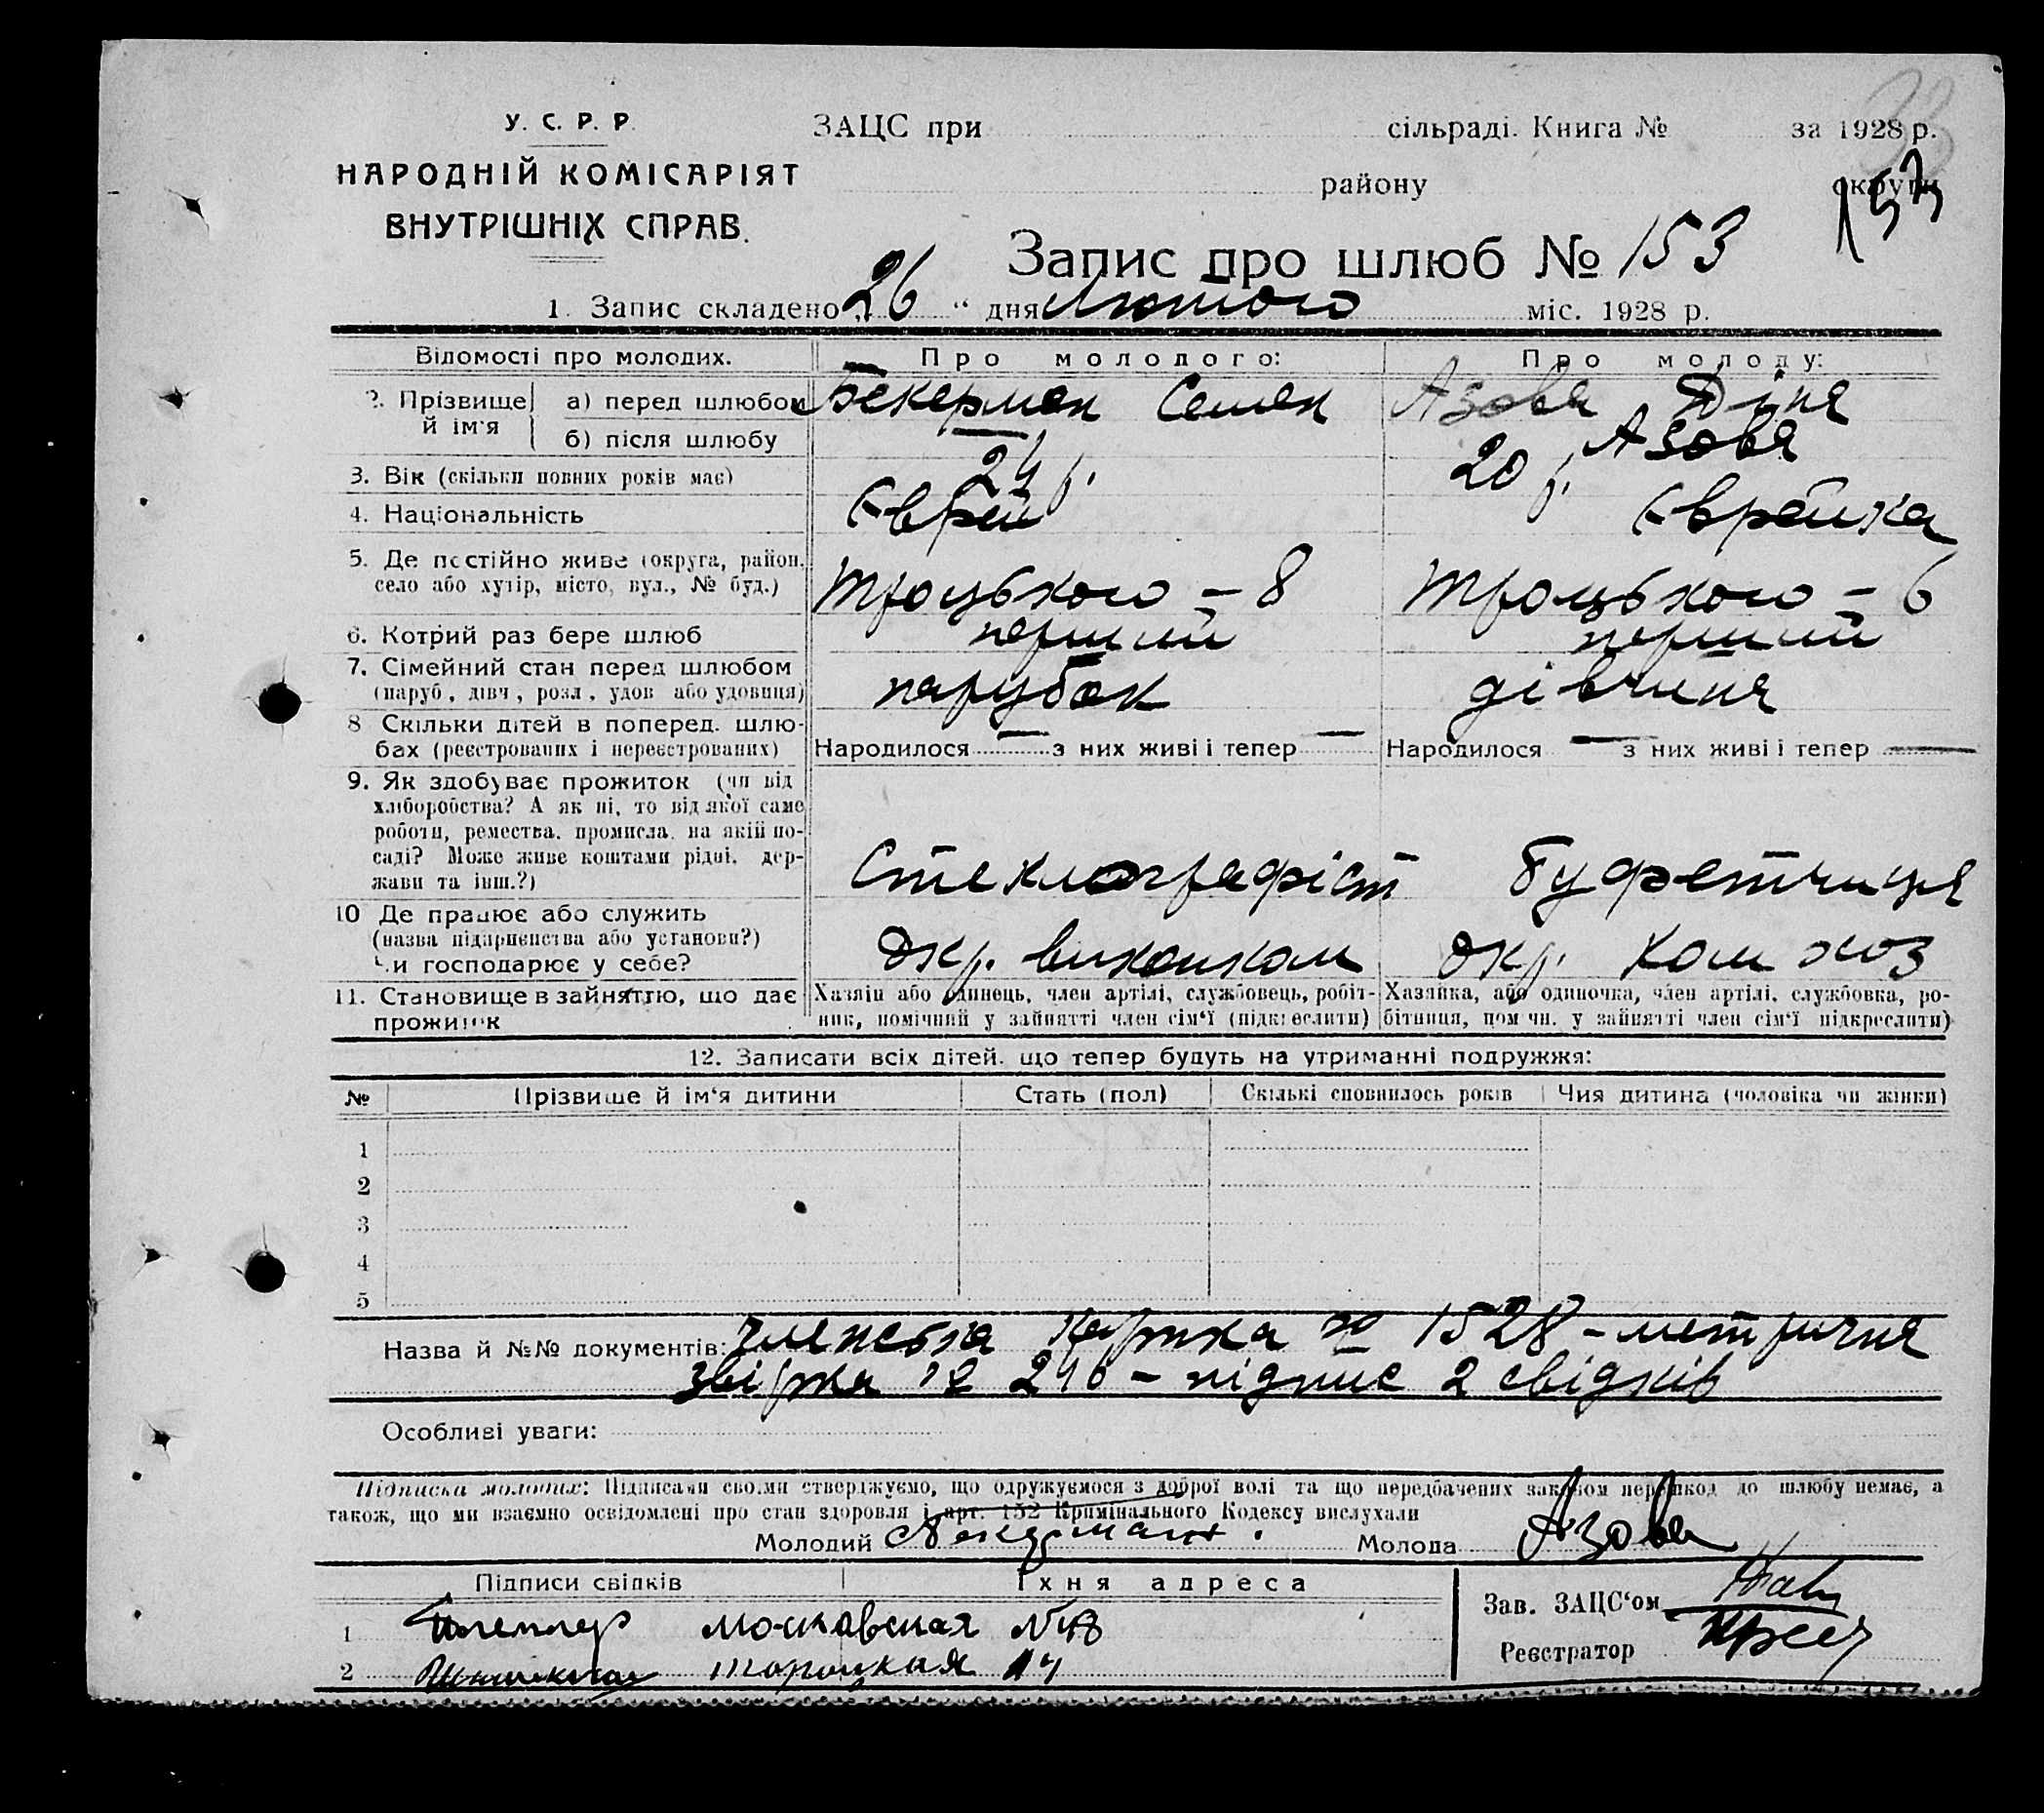 У. С. Р. Р.
НАРОДНІЙ КОМІСАРІЯТ
ВНУТРІШНІХ СПРАВ.
ЗАЦС при сільраді. Книга № за 1928 р.
району округи
153
Запис про шлюб № 153
1. Запис складено „26“ дня Лютого міс. 1928 р.
Відомості про молодих. Про молодого: Про молоду:
2. Прізвище й ім'я
а) перед шлюбом Бекерман Семен Азова Діна
б) після шлюбу Азова
3. Вік (скільки повних років має) 24 р. 20 р.
4. Національність Єврей Єврейка
5. Де постійно живе (округа, район, село або хутір, місто, вул., № буд.) Троцького – 8 Троцького – 6
6. Котрий раз бере шлюб перший перший
7. Сімейний стан перед шлюбом (паруб., дівч., розл., удов. або удовиця) парубок дівчина
8 Скільки дітей в поперед. шлюбах (реєстрованих і нереєстрованих) Народилося — з них живі і тепер — Народилося — з них живі і тепер —
9. Як здобуває прожиток (чи від хліборобства? А як ні, то від якої саме роботи, ремества, промисла, на якій посаді? Може живе коштами рідні, держави та інш.?) Стеклографіст буфетчиця
10 Де працює або служить (назва підприєнства або установи?) Чи господарює у себе? Окр. виконком Окр. Комхоз
11. Становище в зайняттю, що дає прожиток
Хазяїн або одинець, член артілі, службовець, робітник, помічний у зайнятті член сім'ї (підкреслити)
Хазяйка, або одиночка, член артілі, службовка, робітниця, помічн. у зайнятті член сім'ї підкреслити)
12. Записати всіх дітей, що тепер будуть на утриманні подружжя:
№ Прізвище й ім'я дитини Стать (пол) Скількі сповнилось років Чия дитина (чоловіка чи жінки)
1
2
3
4
5
Назва й №№ документів: членська картка № 1528 – метрична
звірка № 246 – підпис 2 свідків
Особливі уваги:
Підписка молодих: Підписами своїми стверджуємо, що одружуємося з доброї волі та що передбачених законом перешкод до шлюбу немає, а
також, що ми взаємно освідомлені про стан здоровля і арт. 152 Кримінального Кодексу вислухали
Молодий Бекерман Молода Азова
Підписи свідків Їхня адреса
1 московская № 48
2
Зав. ЗАЦС'ом
Реєстратор